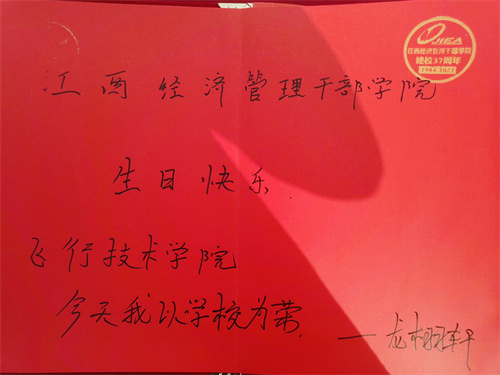 JIEA
江西经济管理干部学院
建校37周年
1984-2021
江西经济管理干部学院
生日快乐
飞行技术学院
今天我以学校为荣
——龙相轩